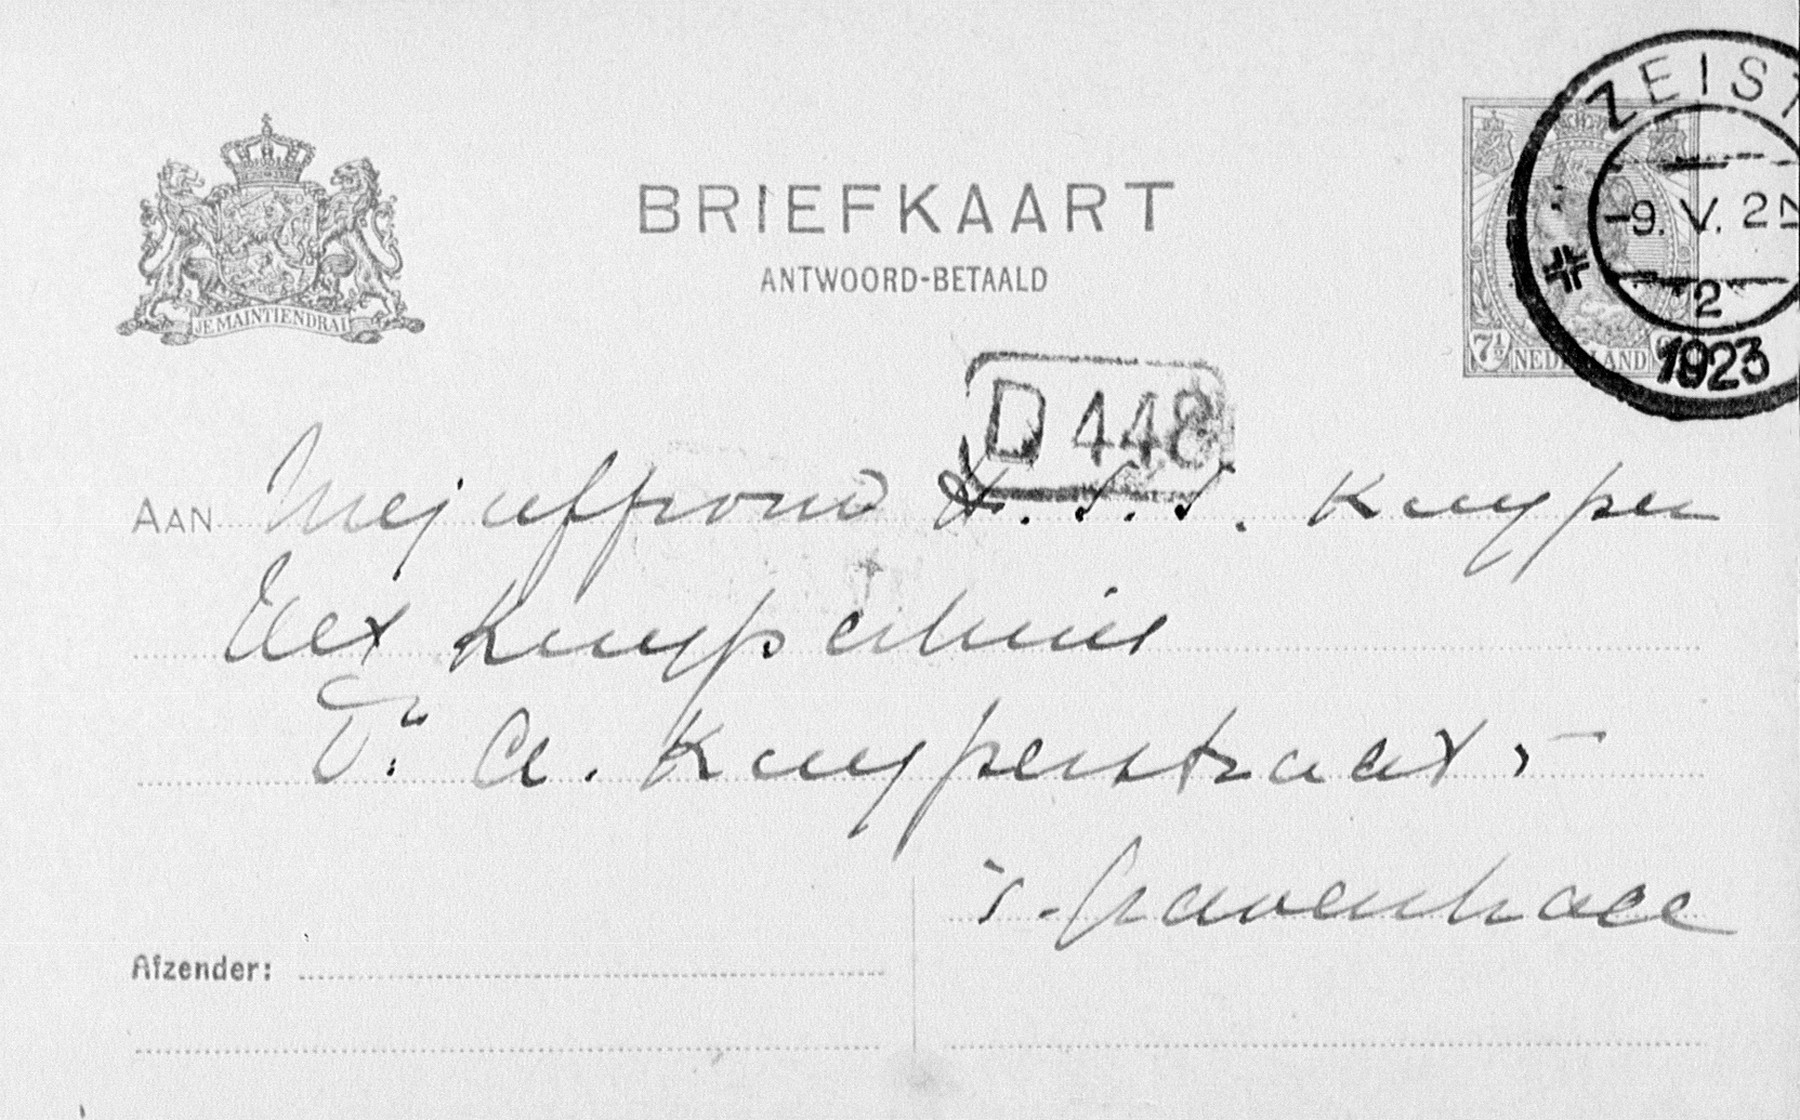 BRIEFKAART
ANTWOORD-BETAALD
JE MAINTIENDRAI
ZEIST
-9.V.2N
2
1923
7½ NEDERLAND
D 448
AAN Mejuffrouw H. S. S. Kuyper
Het Kuyperhuis
Dr. A. Kuyperstraat 5
's-Gravenhage
Afzender: